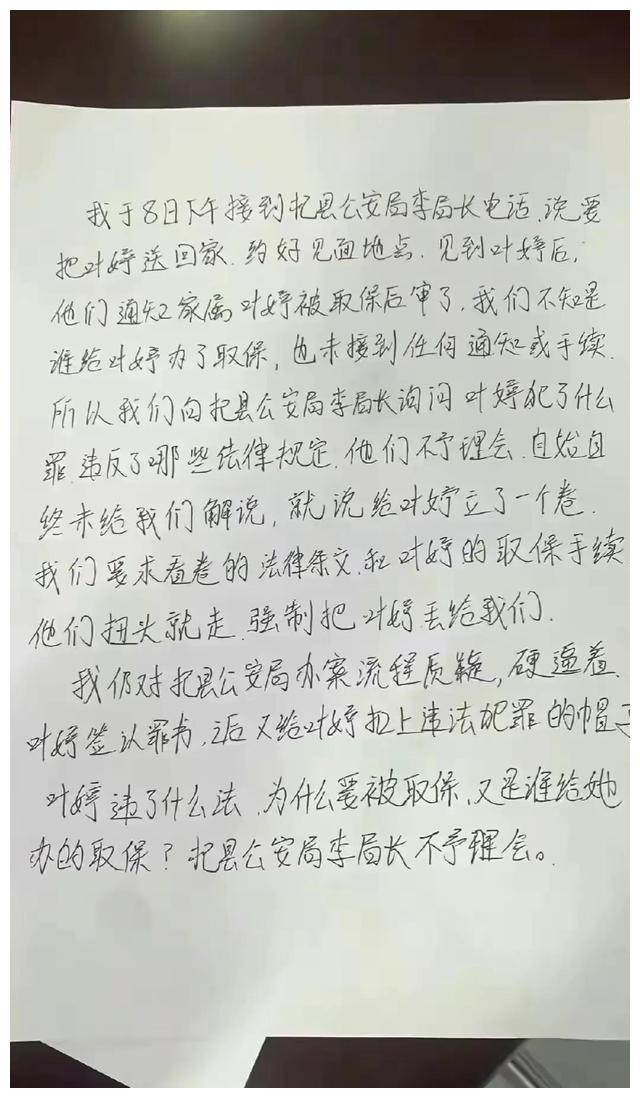 我于8日下午接到杞县公安局李局长电话、说要
把叶婷送回家.约好见面地点.见到叶婷后,
他们通知家属叶婷被取保后审了.我们不知是
谁给叶婷办了取保,也未接到任何通知或手续.
所以我们向杞县公安局李局长询问叶婷犯了什么
罪.违反了哪些法律规定.他们不予理会.自始自
终未给我们解说,就说给叶婷立了一个卷.
我们要求看卷的法律条文.和叶婷的取保手续
他们扭头就走.强制把叶婷丢给我们.
我仍对杞县公安局办案流程质疑,硬逼着.
叶婷签认罪书.后又给叶婷扣上违法犯罪的帽子
叶婷违了什么法.为什么要被取保、又是谁给她
办的取保?杞县公安局李局长不予理会。